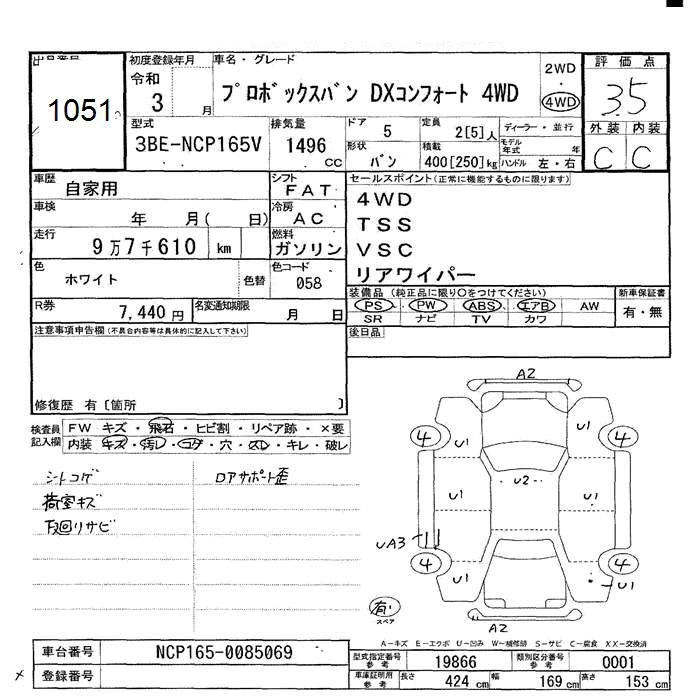 出品番号
1051
初度登録年月
令和
3 月
車名・グレード
プロボックスバン DXコンフォート 4WD
2WD
・
4WD
評価点
3.5
外装 内装
C C
型式
3BE-NCP165V
排気量
1496
cc
ドア
5
定員
2[5]人
形状
バン
積載
400[250]kg
ディーラー・並行
モデル年式 年
ハンドル 左・右
車歴
自家用
車検
年 月( 日)
走行
9万7千610 km
色
ホワイト
色替
R券
7,440 円
名変通知期限
月 日
シフト
FAT
冷房
AC
燃料
ガソリン
色コード
058
セールスポイント(正常に機能するものに限ります)
4WD
TSS
VSC
リアワイパー
装備品(純正品に限り○をつけてください)
PS PW ABS エアB AW
SR ナビ TV カワ
新車保証書
有・無
後日品
注意事項申告欄(不具合内容等は具体的に記入して下さい)
修復歴 有〔箇所 〕
検査員記入欄
FW キズ・飛石・ヒビ割・リペア跡・×要
内装 キズ・汚レ・コゲ・穴・スレ・キレ・破レ
シートコゲ
荷室キズ
下廻りサビ
ロアサポート歪
A2
4
U1
U1
4
U1
U2
U1
UA3
4
U1
U1
4
有
スペア
A2
A-キズ E-エクボ U-凹み W-補修跡 S-サビ C-腐食 XX-交換済
車台番号
NCP165-0085069
登録番号
型式指定番号参考
19866
類別区分番号参考
0001
車庫証明用参考
長さ 424 cm
幅 169 cm
高さ 153 cm